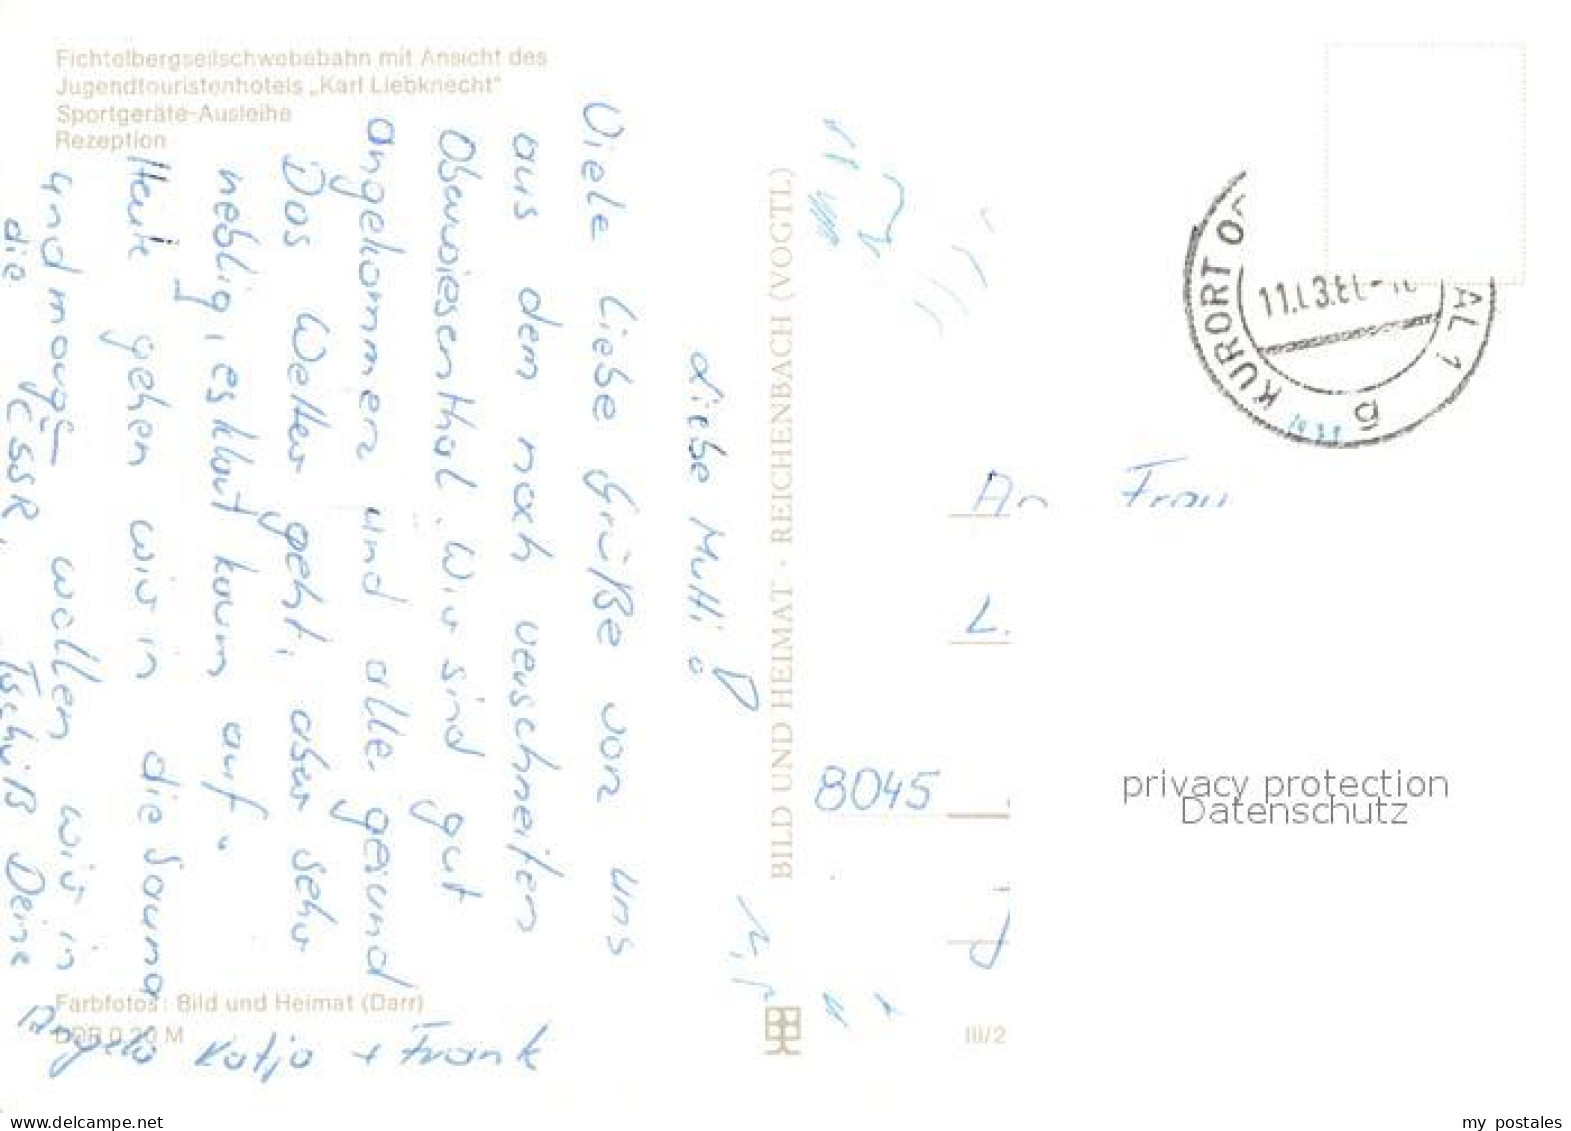 Fichtelbergseilschwebebahn mit Ansicht des
Jugendtouristenhotels „Karl Liebknecht"
Sportgeräte-Ausleihe
Rezeption
Liebe Mutti!
Viele liebe Grüße von uns
aus dem noch verschneiten
Oberwiesenthal. Wir sind gut
angekommen und alle gesund
Das Wetter geht, aber sehr
neblig, es klart kaum auf.
Heute gehen wir in die Sauna
und morgen wollen wir in
die ČSSR.
Tschüß Deine
Angela Katja + Frank
Farbfotos: Bild und Heimat (Darr)
DDR 0,20 M
BILD UND HEIMAT · REICHENBACH (VOGTL)
III/2
KURORT O
AL 1
An Frau
L.
8045
privacy protection
Datenschutz
www.delcampe.net
my_postales